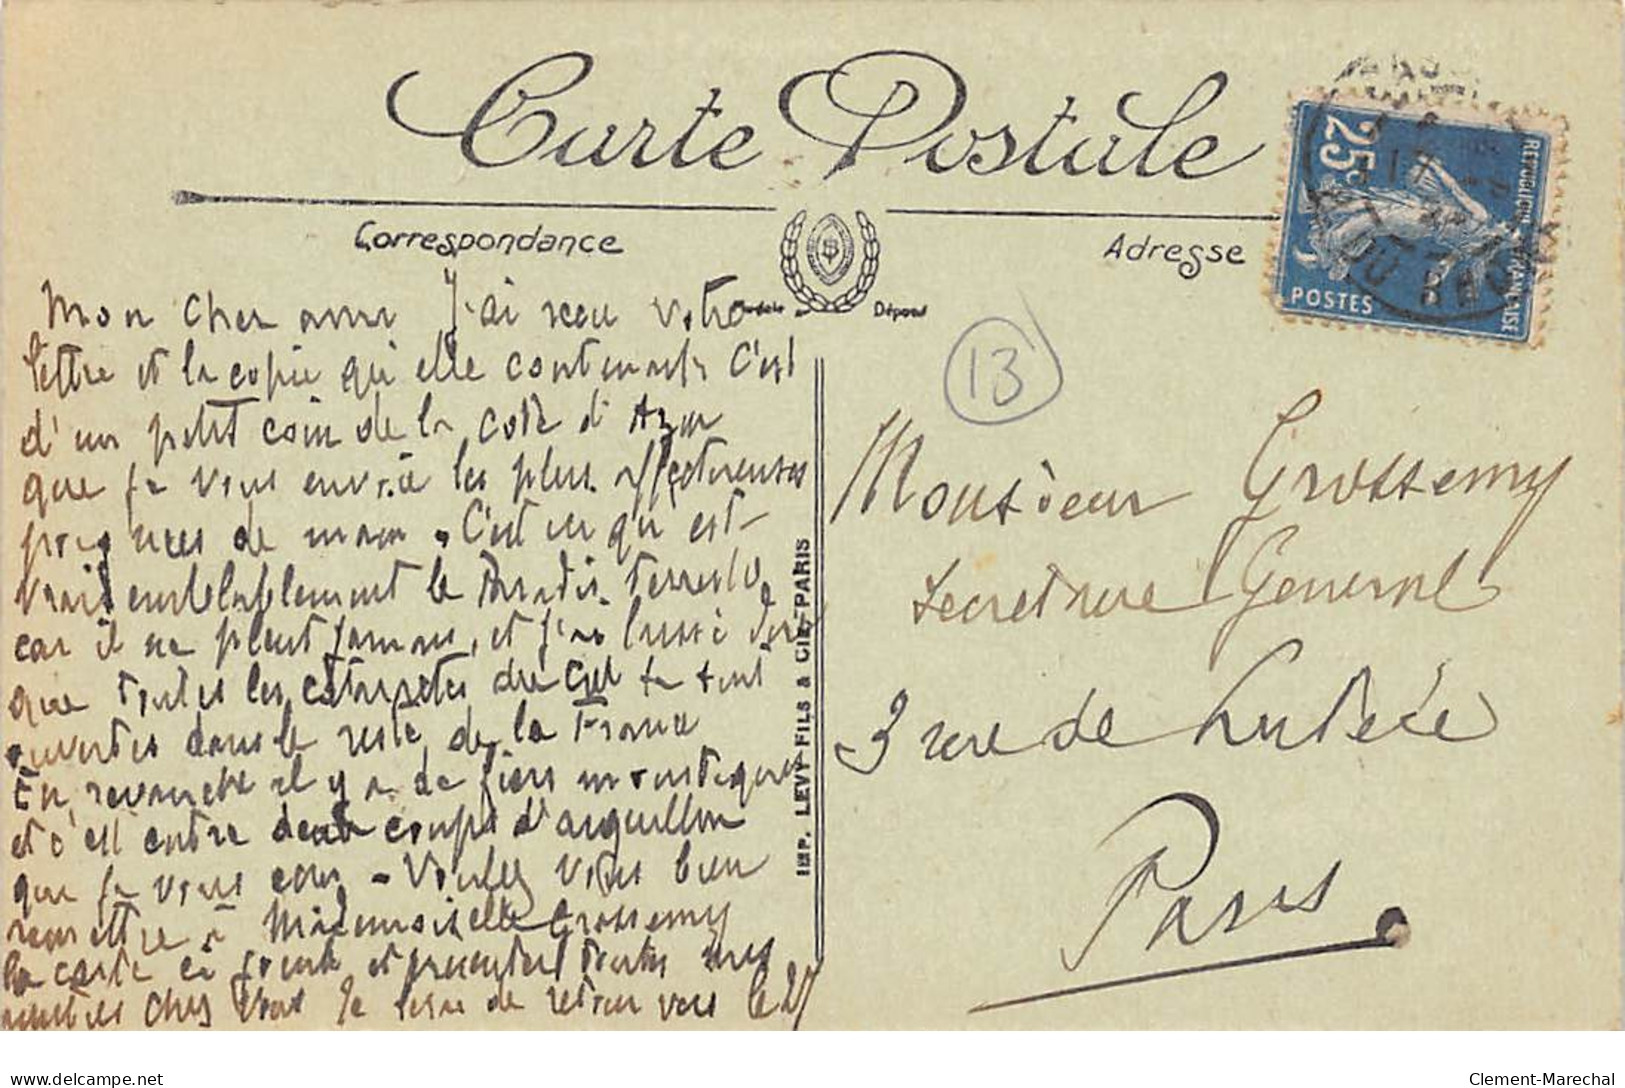 Carte Postale
Correspondance
Adresse
Modèle Déposé
25c
REPUBLIQUE FRANÇAISE
POSTES
13
Mon cher ami J'ai reçu votre
lettre et la copie qu'elle contenait. C'est
d'un petit coin de la Cote d'Azur
que je vous envoie les plus affectueuses
poignées de main. C'est ici qu'est
vraisemblablement le Paradis terrestre
car il ne pleut jamais, et j'ai laissé dire
que toutes les cataractes du Ciel se sont
ouvertes dans le reste de la France
En revanche il y a de fiers moustiques
et c'est entre deux coups d'aiguillon
que je vous écris - Voulez vous bien
remettre à Mademoiselle Grossemy
la carte ci jointe et présenter toutes mes
amitiés chez vous Je serai de retour vers le 27
IMP. LEVY FILS & CIE, PARIS
Monsieur Grossemy
Secretaire General
3 rue de Lutèce
Paris
Clement-Marechal